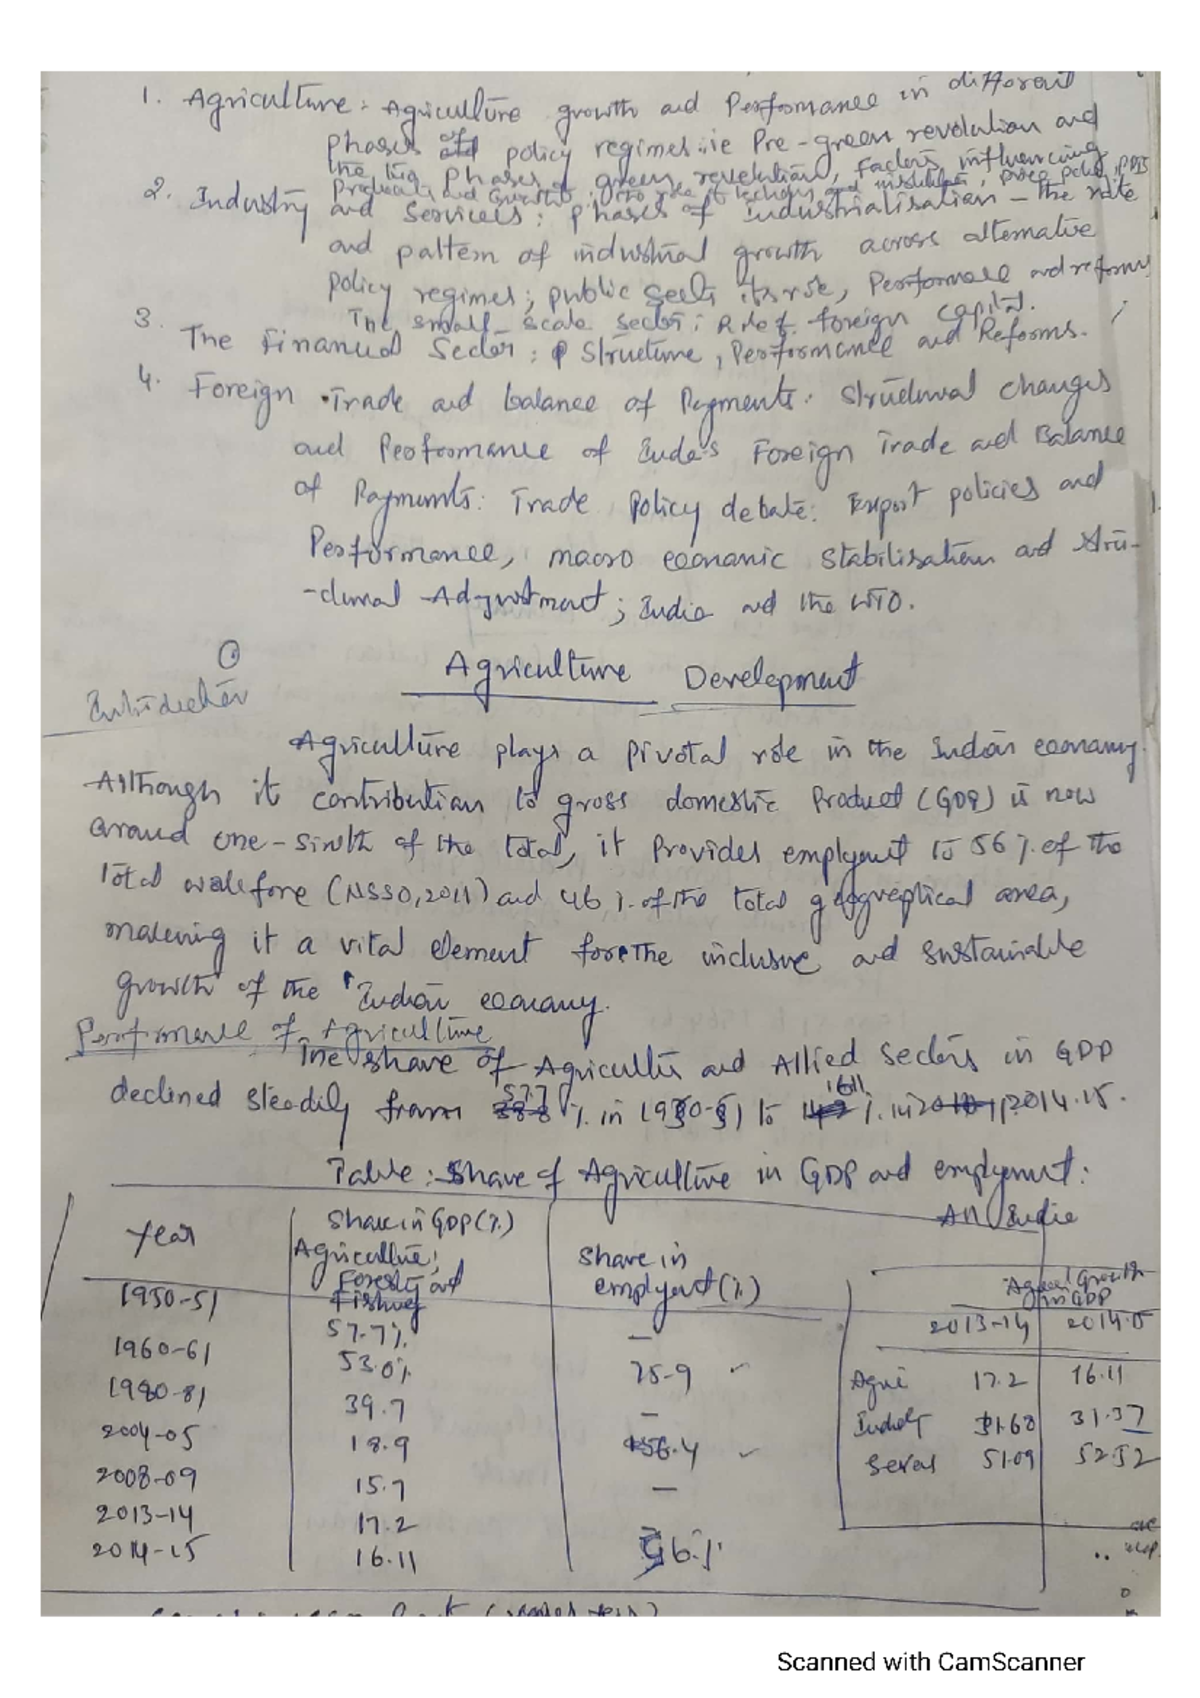 1. Agriculture : Agriculture growth and Performance in different
phases of policy regimes : ie Pre-green revolution and
the two Phases of green revolution, Factors influencing
Productivity and Growth : and
2. Industry and Services : phases of industrialisation - the rate
and pattern of industrial growth across alternative
policy regimes ; public sector its role, Performance and reforms
The small-scale sector ; Role of foreign capital.
3. The Financial Sector : Structure, Performance and Reforms.
4. Foreign Trade and balance of Payments. Structural changes
and Performance of India's Foreign Trade and Balance
of Payments : Trade Policy debate : Export policies and
Performance, macro economic stabilisation and Stru-
-ctural Adjustment ; India and the WTO.
①
Agriculture Development
Introduction
Agriculture plays a pivotal role in the Indian economy.
Although it contribution to gross domestic Product (GDP) is now
around one-sixth of the total, it Provides employment to 56 %. of the
total workforce (NSSO, 2011) and 46 %. of the total geographical area,
making it a vital element for the inclusive and sustainable
growth of the Indian economy.
Performance of Agriculture
The share of Agriculture and Allied Sectors in GDP
declined steadily from 57.7 %. in 1950-51 to 16.11 %. in 2014-15.
Table : Share of Agriculture in GDP and employment :
All India
Year Share in GDP (%) Share in employment (%)
Agriculture, Forestry and Fishing
1950-51 57.7% —
1960-61 53.0% 75.9
1980-81 39.7 —
2004-05 18.9 56.4
2008-09 15.7 —
2013-14 17.2
2014-15 16.11 46 %
Growth in GDP
2013-14 2014-15
Agri 17.2 16.11
Indust 31.68 31.37
Serves 51.09 52.52
Scanned with CamScanner